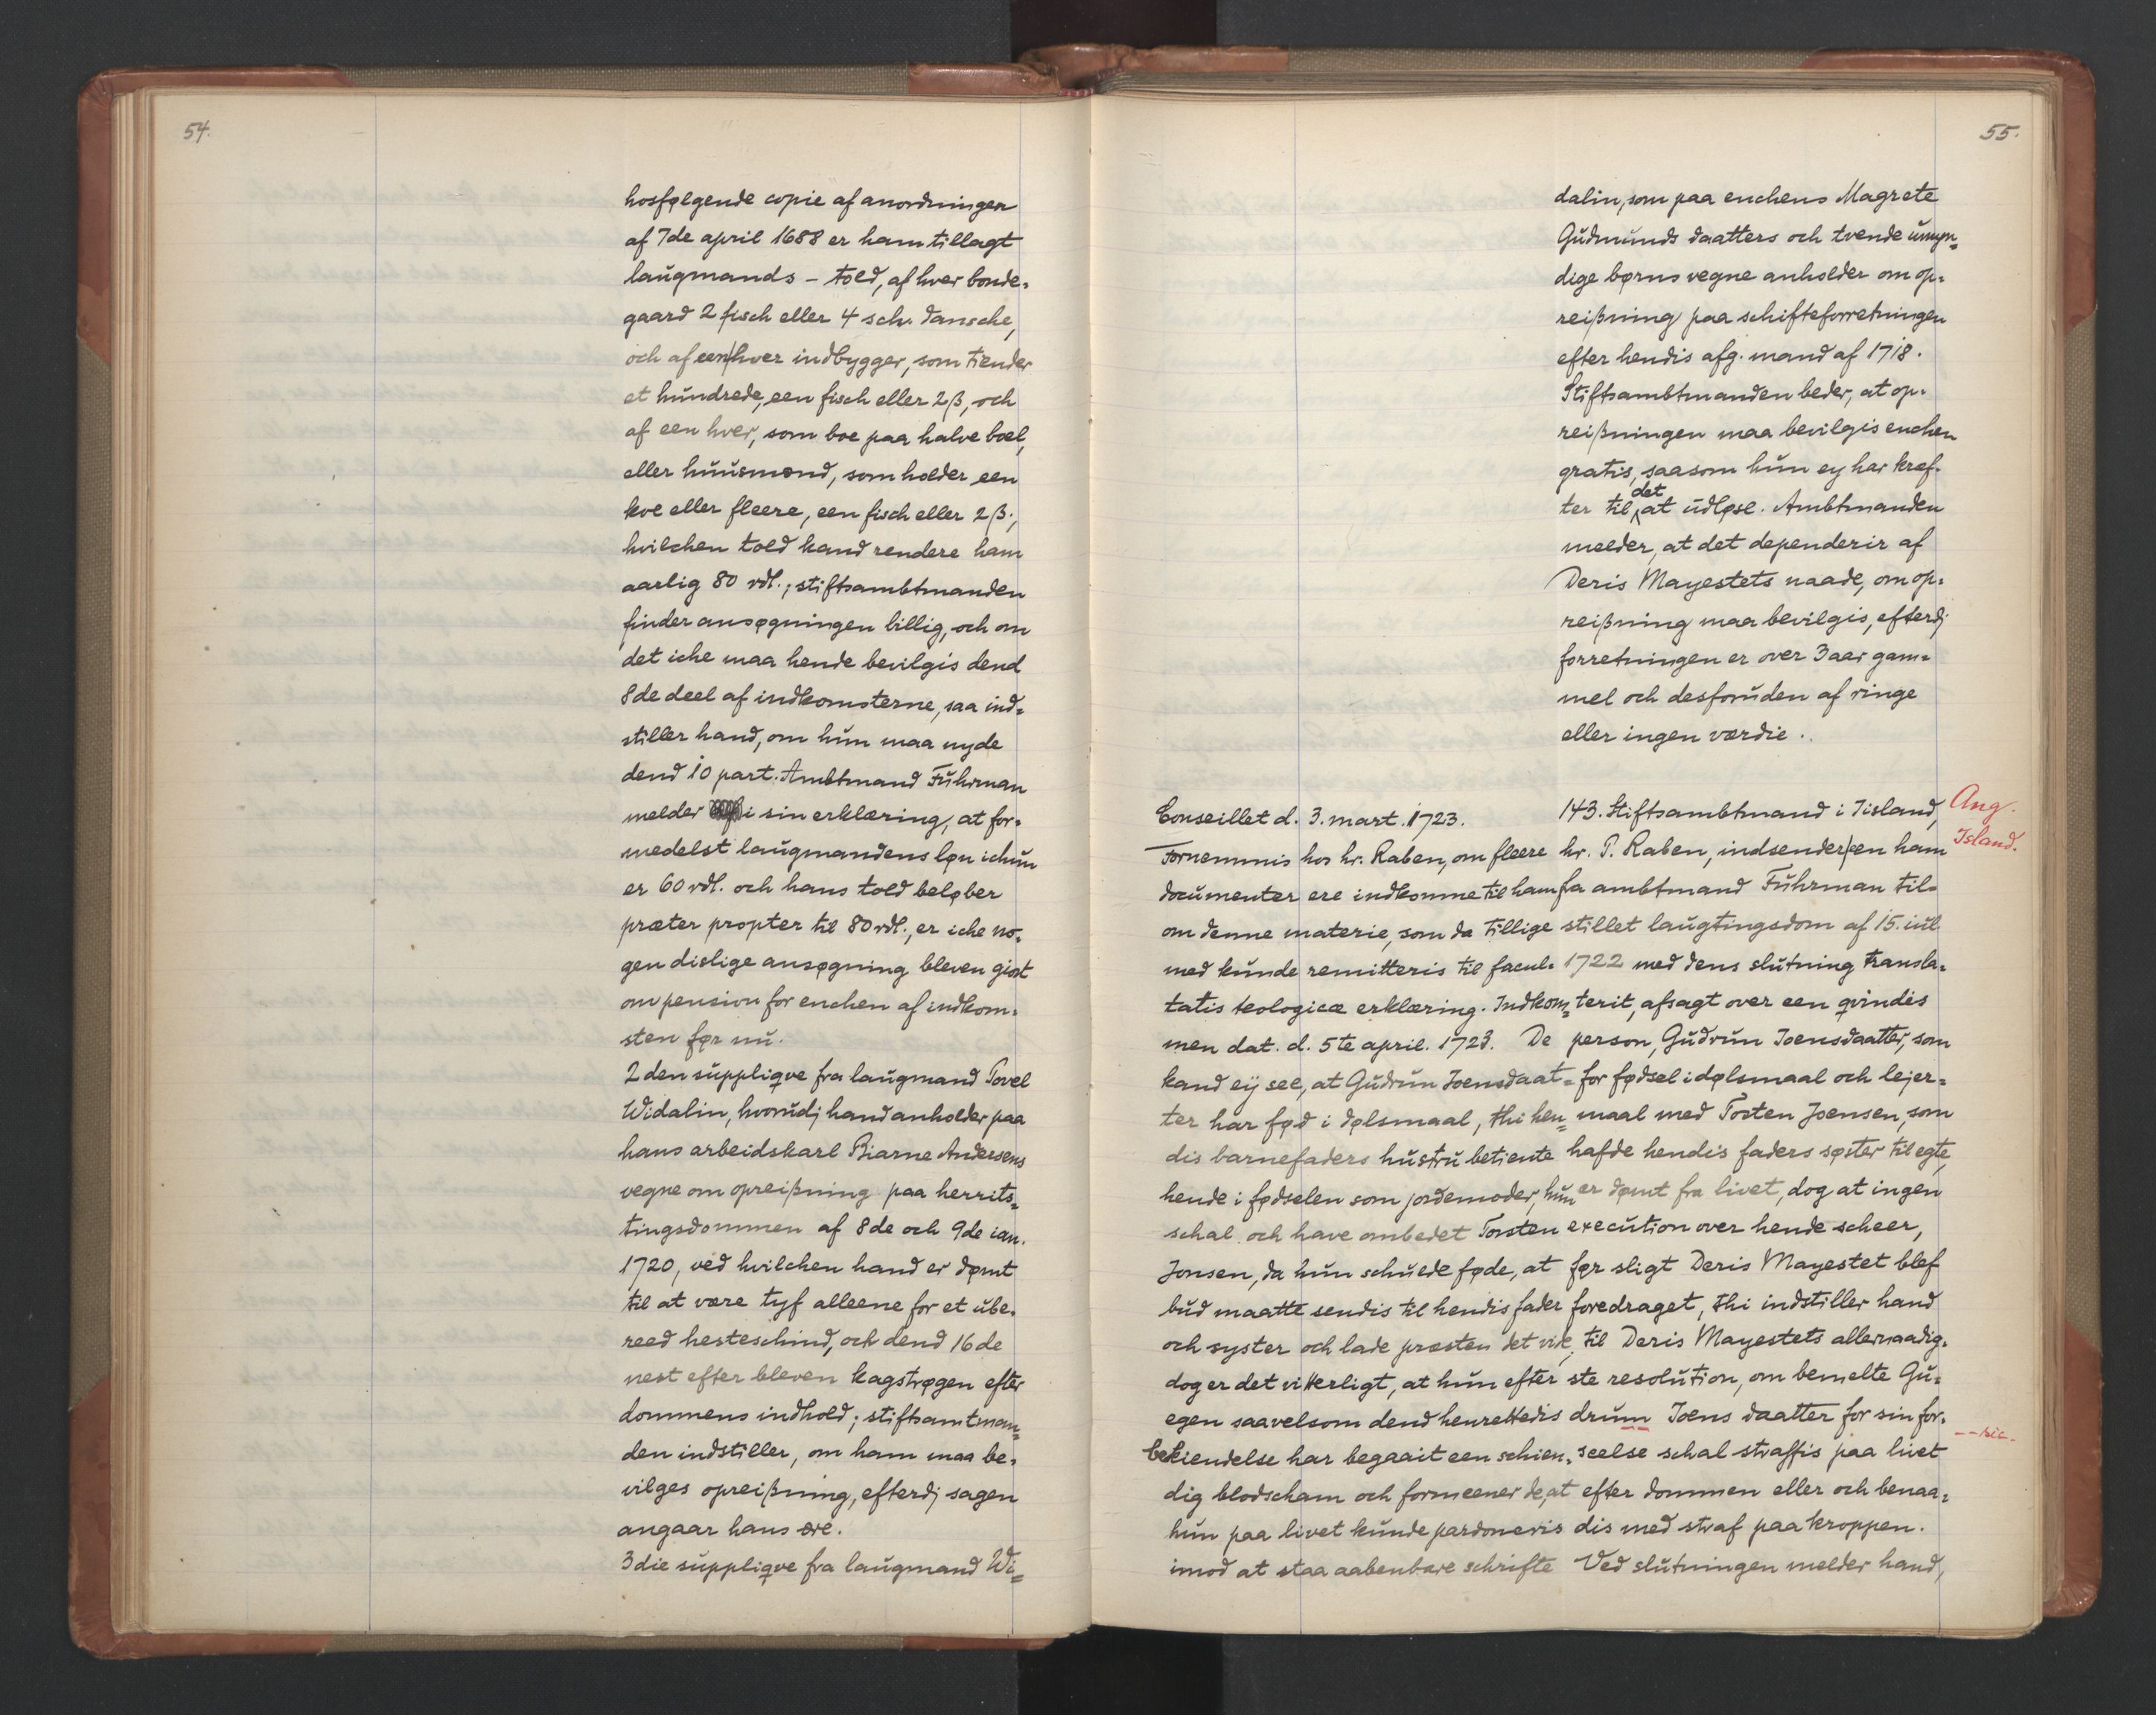 54.
hosfølgende copie af anordningen
af 7de april 1688 er ham tillagt
laugmands - told, af hver bonde-
gaard 2 fisch eller 4 sch. dansche,
och af een hver indbygger, som tiender
et hundrede, een fisch eller 2 β, och
af een hver, som boe paa halve boel,
eller huusmænd, som holder een
koe eller fleere, een fisch eller 2 β.,
hvilchen told kand rendere ham
aarlig 80 rdl.; stiftsambtmanden
finder ansøgningen billig, och om
det iche maa hende bevilgis dend
8de deel af indkomsterne, saa ind-
stiller hand, om hun maa nyde
dend 10 part. Ambtmand Fuhrman
melder i sin erklæring, at for-
medelst laugmandens løn ichun
er 60 rdl. och hans told beløber
præter propter til 80 rdl., er iche no-
gen dislige ansøgning bleven giort
om pension for enchen af indkom-
sten før nu.
2den supplique fra laugmand Povel
Widalin, hvorudj hand anholder paa
hans arbeidskarl Biarne Andersens
vegne om opreißning paa herrits-
tingsdommen af 8de och 9de ian.
1720, ved hvilchen hand er dømt
til at være tyf alleene for et ube-
reed hesteschind, och dend 16de
nest efter bleven kagstrøgen efter
dommens indhold; stiftsamtman-
den indstiller, om ham maa be-
vilges opreißning, efterdj sagen
angaar hans ære.
3die supplique fra laugmand Wi-
55.
dalin, som paa enchens Magrete
Gudmunds daatters och tvende umyn-
dige børns vegne anholder om op-
reißning paa schifteforretningen
efter hendis afg. mand af 1718.
Stiftsambtmanden beder, at op-
reißningen maa bevilgis enchen
gratis, saasom hun ey har kræf-
ter til det at udløse. Ambtmanden
melder, at det dependerir af
Deris Mayestets naade, om op-
reißning maa bevilgis, efterdj
forretningen er over 3 aar gam-
mel och desforuden af ringe
eller ingen værdie.
Conseillet d. 3. mart. 1723.
Fornemmis hos hr. Raben, om fleere
documenter ere indkomne til ham
om denne materie, som da tillige
med kunde remitteris til facul-
tatis teologicæ erklæring. Indkom-
men dat. d. 5te april. 1723. De
kand eij see, at Gudrun Joensdaat-
ter har fød i dølsmaal, thi hen-
dis barnefaders hustru betiente
hende i fødselen som jordemoder, hun
schal och have ombedet Torsten
Jonsen, da hun schulde føde, at
bud maatte sendis til hendis fader
och syster och lade præsten det vide,
dog er det vitterligt, at hun efter
egen saavelsom dend henrettedis
bekiendelse har begaait een schien-
dig blodscham och formeener de, at
hun paa livet kunde pardoneris
imod at staa aabenbare schrifte
143. Stiftsambtmand i Iisland,
hr. P. Raben, indsender een ham
fra ambtmand Fuhrman til-
stillet laugtingsdom af 15. iul
1722 med dens slutning transla-
terit, afsagt over een qvindis
person, Gudrun Joensdaatter, som
for fødsel i dølsmaal och lejer-
maal med Torten Joensen, som
hafde hendis faders søster til egte,
er dømt fra livet, dog at ingen
execution over hende scheer,
før sligt Deris Mayestet blef
foredraget, thi indstiller hand
til Deris Mayestets allernaadig-
ste resolution, om bemelte Gu-
drum Joens daatter for sin for-
seelse schal straffis paa livet
efter dommen eller och benaa-
dis med straf paa kroppen.
Ved slutningen melder hand,
Ang.
Island.
-- sic.